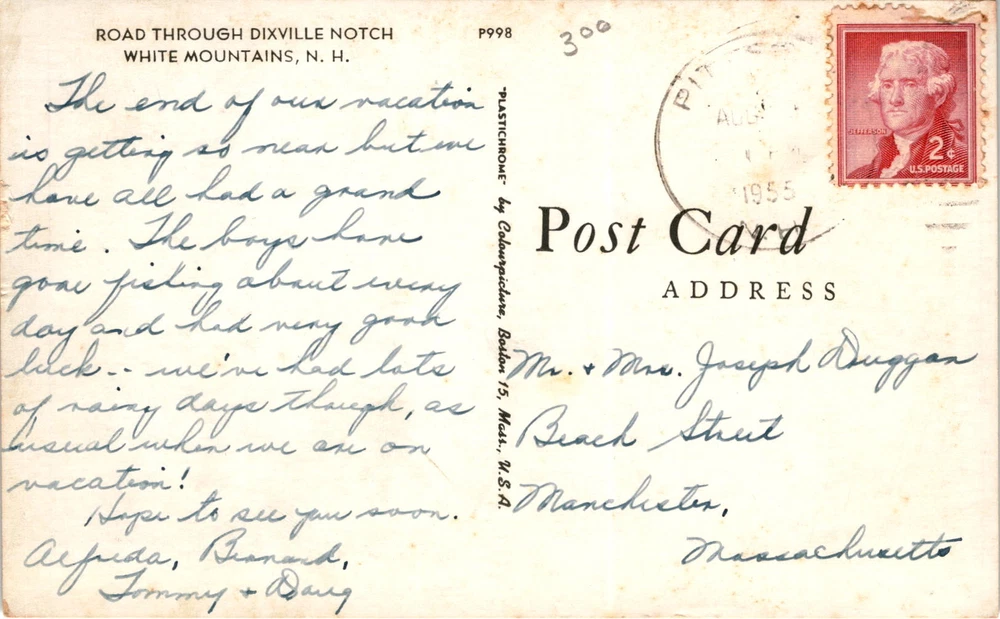 ROAD THROUGH DIXVILLE NOTCH
WHITE MOUNTAINS, N. H.
P998
300
The end of our vacation
is getting so near but we
have all had a grand
time. The boys have
gone fishing about every
day and had very good
luck -- we've had lots
of rainy days though, as
usual when we are on
vacation!
Hope to see you soon.
Alfreda, Bernard,
Tommy + Doug
"PLASTICHROME" by Colourpicture, Boston 15, Mass., U.S.A.
PIT
AUG
1955
JEFFERSON
2¢
U.S. POSTAGE
Post Card
ADDRESS
Mr. + Mrs. Joseph Duggan
Beach Street
Manchester,
Massachusetts